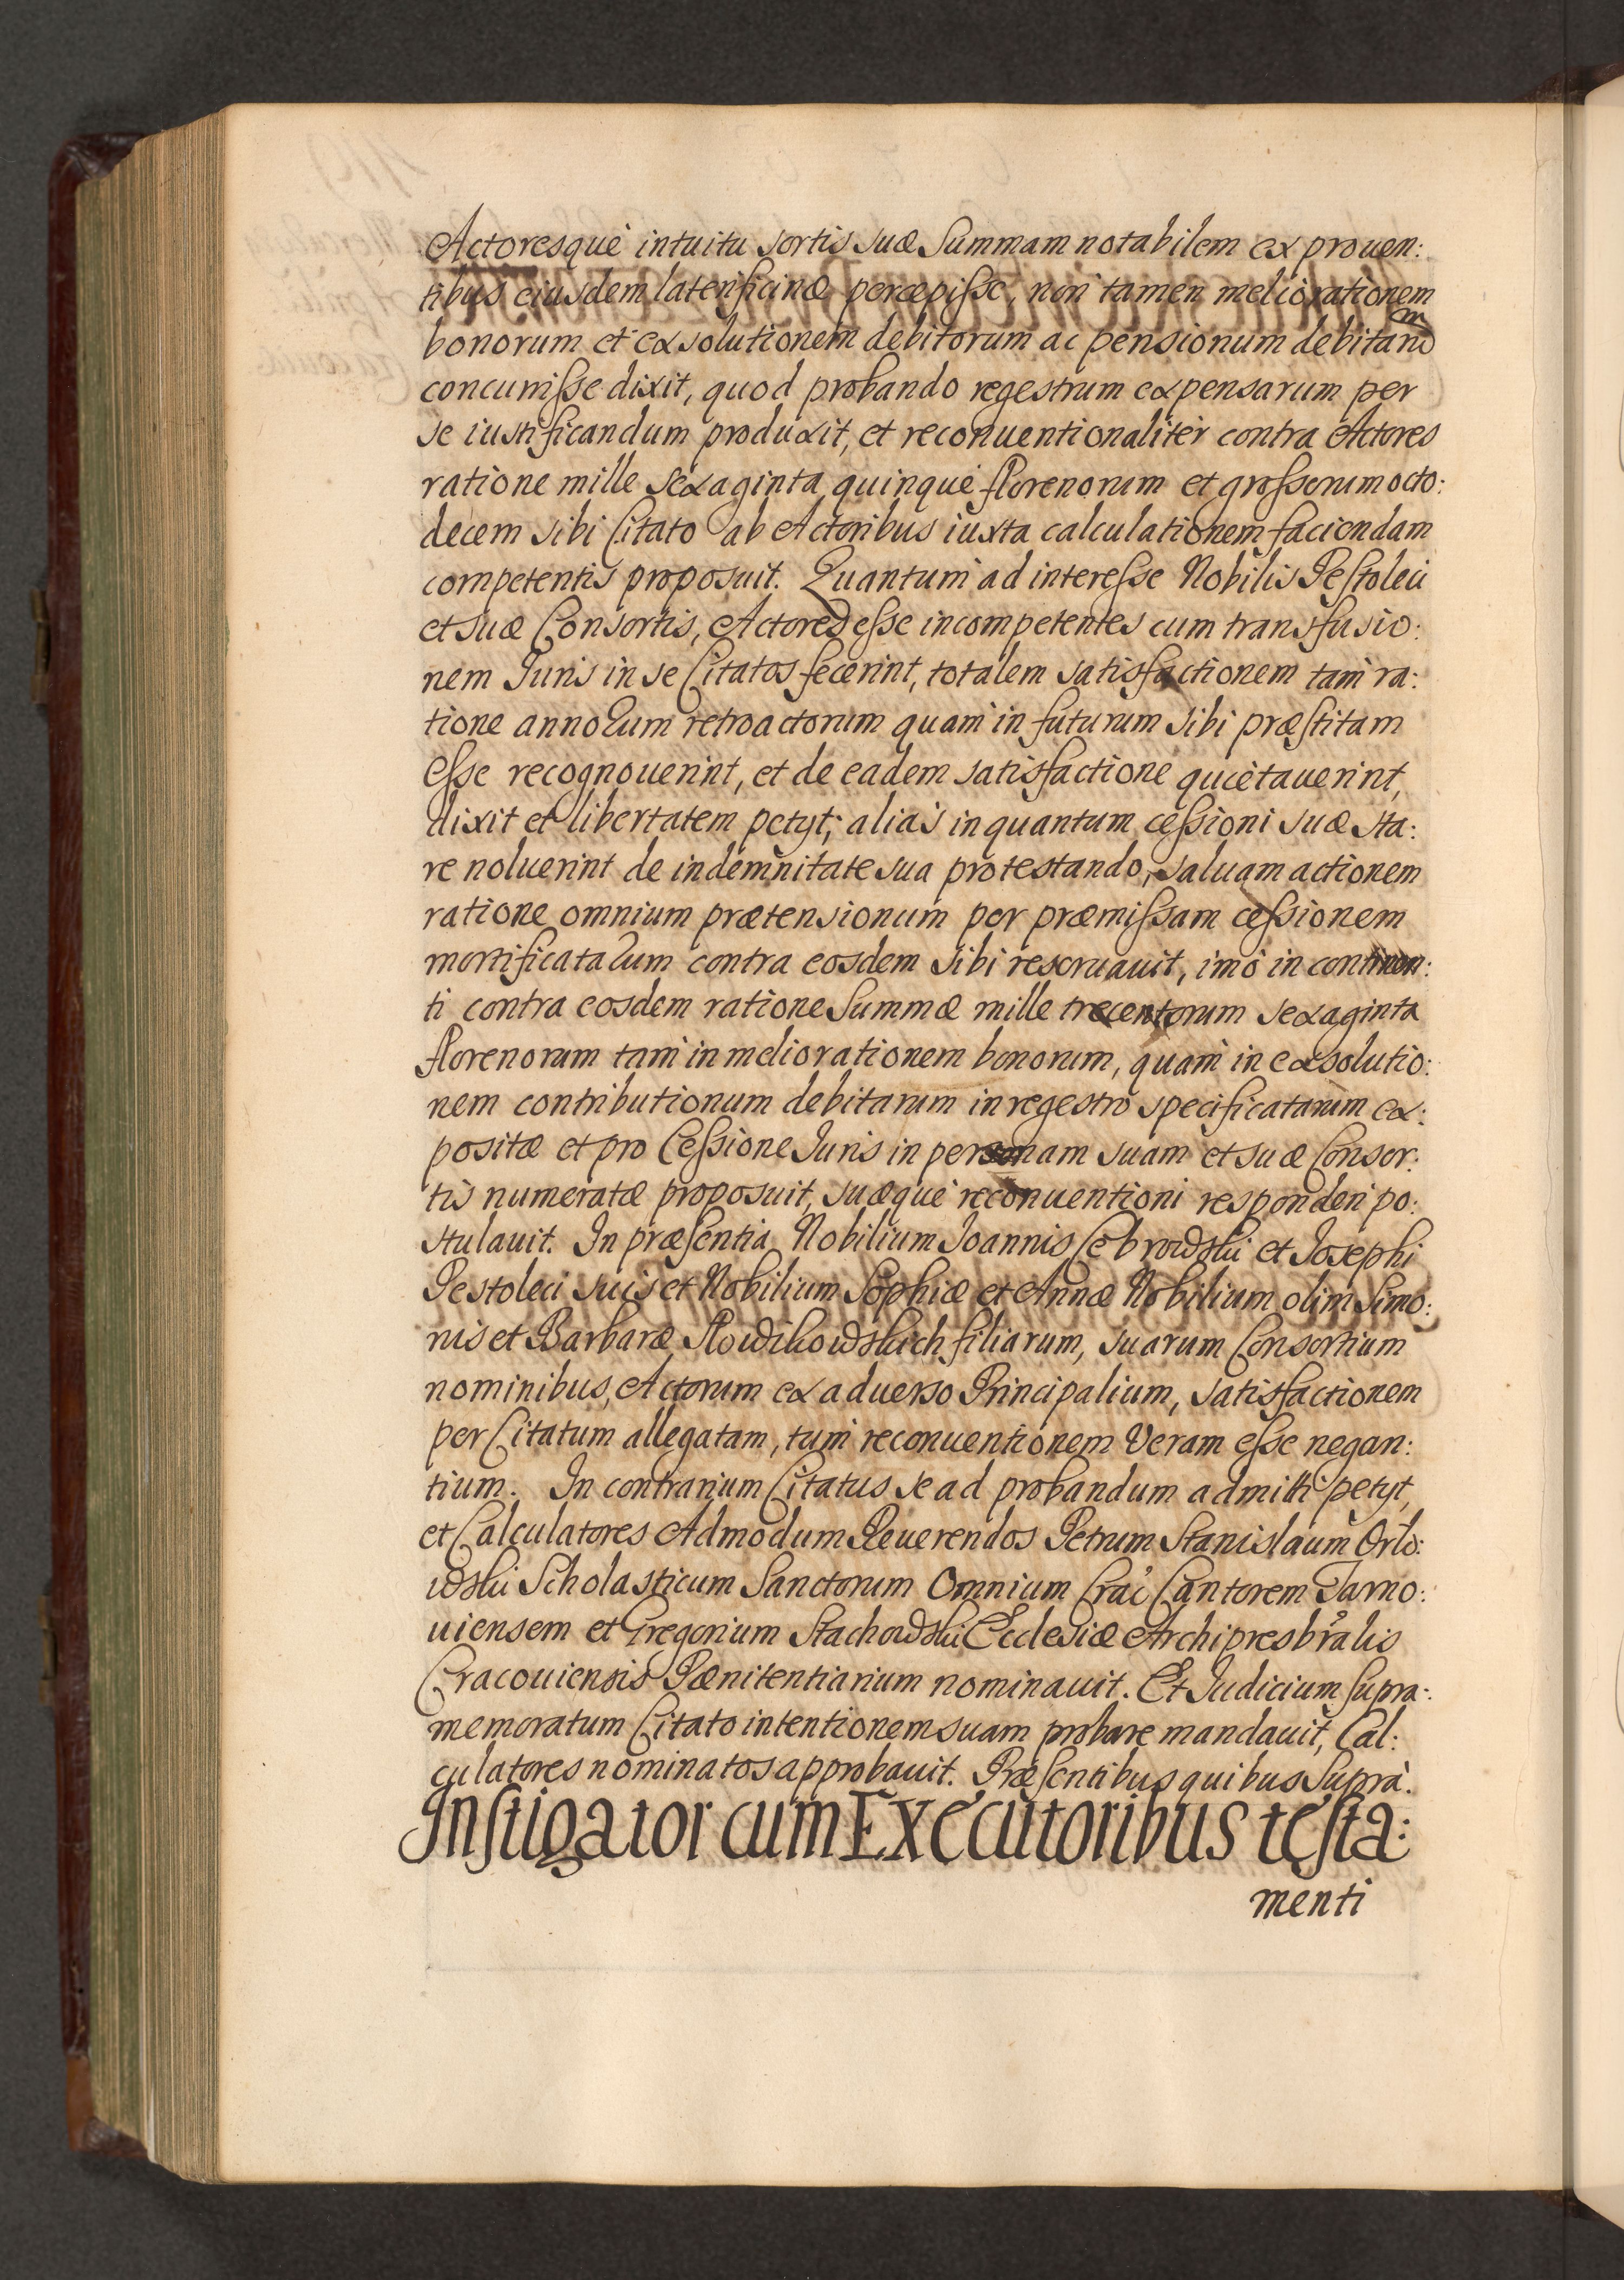 Actoresquè intuitu sortis suæ Summam notabilem ex prouen:
tibus eiusdem laterificinæ percepisse, non tamen meliorationem
bonorum et exsolutionem debitorum ac pensionum debitam
concurrisse dixit, quod probando regestrum expensarum per
se iustificandum produxit, et reconuentionalitèr contra Actores
ratione mille sexaginta quinquè florenorum et grossorum octo:
decem sibi Citato ab Actoribus iuxta calculationem faciendam
competentis proposuit. Quantum ad interesse Nobilis Pestoleci
et suæ Consortis, Actores esse incompetentes cum transfusio:
nem Juris in se Citatos fecerint, totalem satisfactionem tam ra:
tione annorum retroactorum quam in futurum sibi præstitam
esse recognouerint, et de eadem satisfactione quietauerint,
dixit et libertatem petyt; aliàs in quantum cessioni suæ sta:
re noluerint de indemnitate sua protestando, saluam actionem
ratione omnium prætensionum per præmissam cessionem
mortificatarum contra eosdem sibi reseruauit, imò in continen:
ti contra eosdem ratione Summæ mille trecentorum sexaginta
florenorum tam in meliorationem bonorum, quàm in exsolutio:
nem contributionum debitarum in regestro specificatarum ex:
positæ et pro Cessione Juris in personam suam et suæ Consor:
tis numeratæ proposuit, suæquè reconuentioni responderi po:
stulauit. In præsentia Nobilium Joannis Cebrowski et Josephi
Pestoleci suis et Nobilium Sophiæ et Annæ Nobilium olim Simo:
nis et Barbaræ Nowikowskich filiarum, suarum Consortium
nominibus, Actorum ex aduerso Principalium, satisfactionem
per Citatum allegatam, tum reconuentionem Veram esse negan:
tium. In contrarium Citatus se ad probandum admitti petyt,
et Calculatores Admodum Reuerendos Petrum Stanislaum Orlo:
wski Scholasticum Sanctorum Omnium Crac Cantorem Tarno:
uiensem et Gregorium Stachowski Ecclesiæ Archipresbralis
Cracouiensis Pænitentiarium nominauit. Et Judicium supra:
memoratum Citato intentionem suam probare mandauit, Cal:
culatores nominatos approbauit. Præsentibus quibus Suprà.
Instigator cum Executoribus testa:
menti